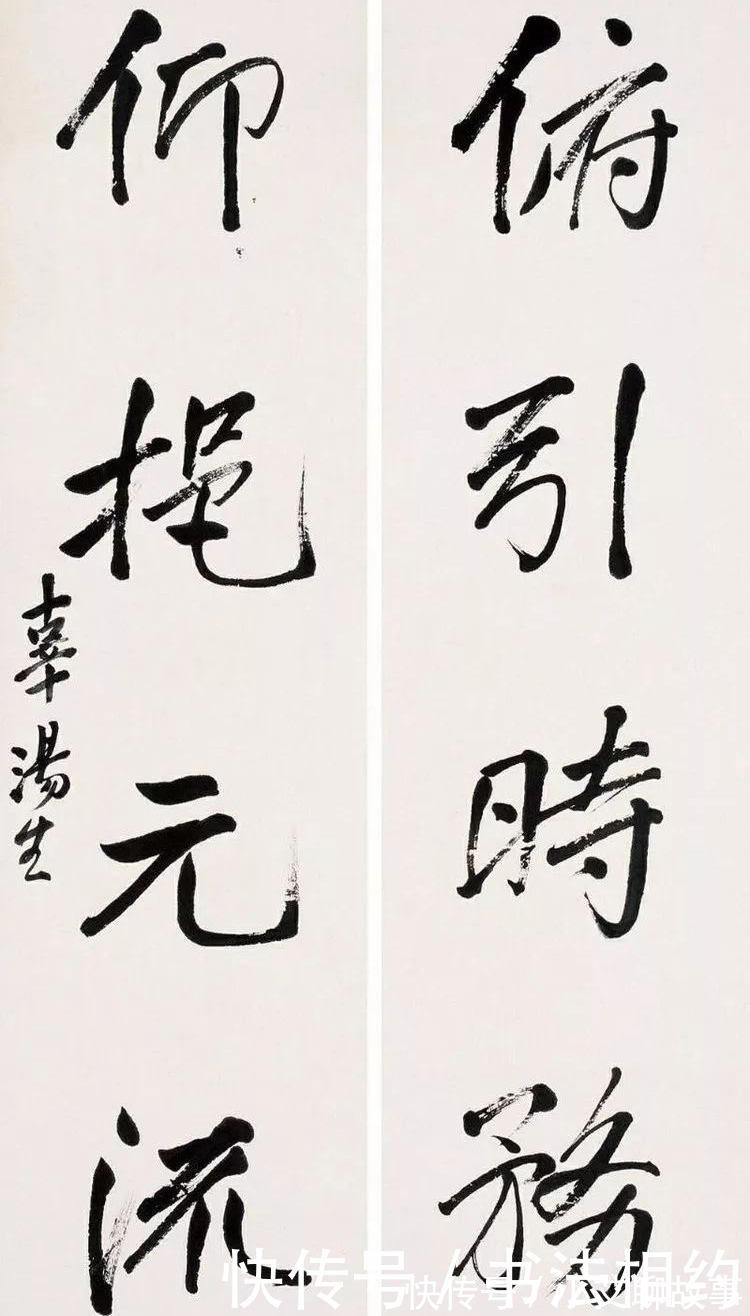 俯引時務
仰挹元流
辜湯生
快传号/书法相约
快传号
故事